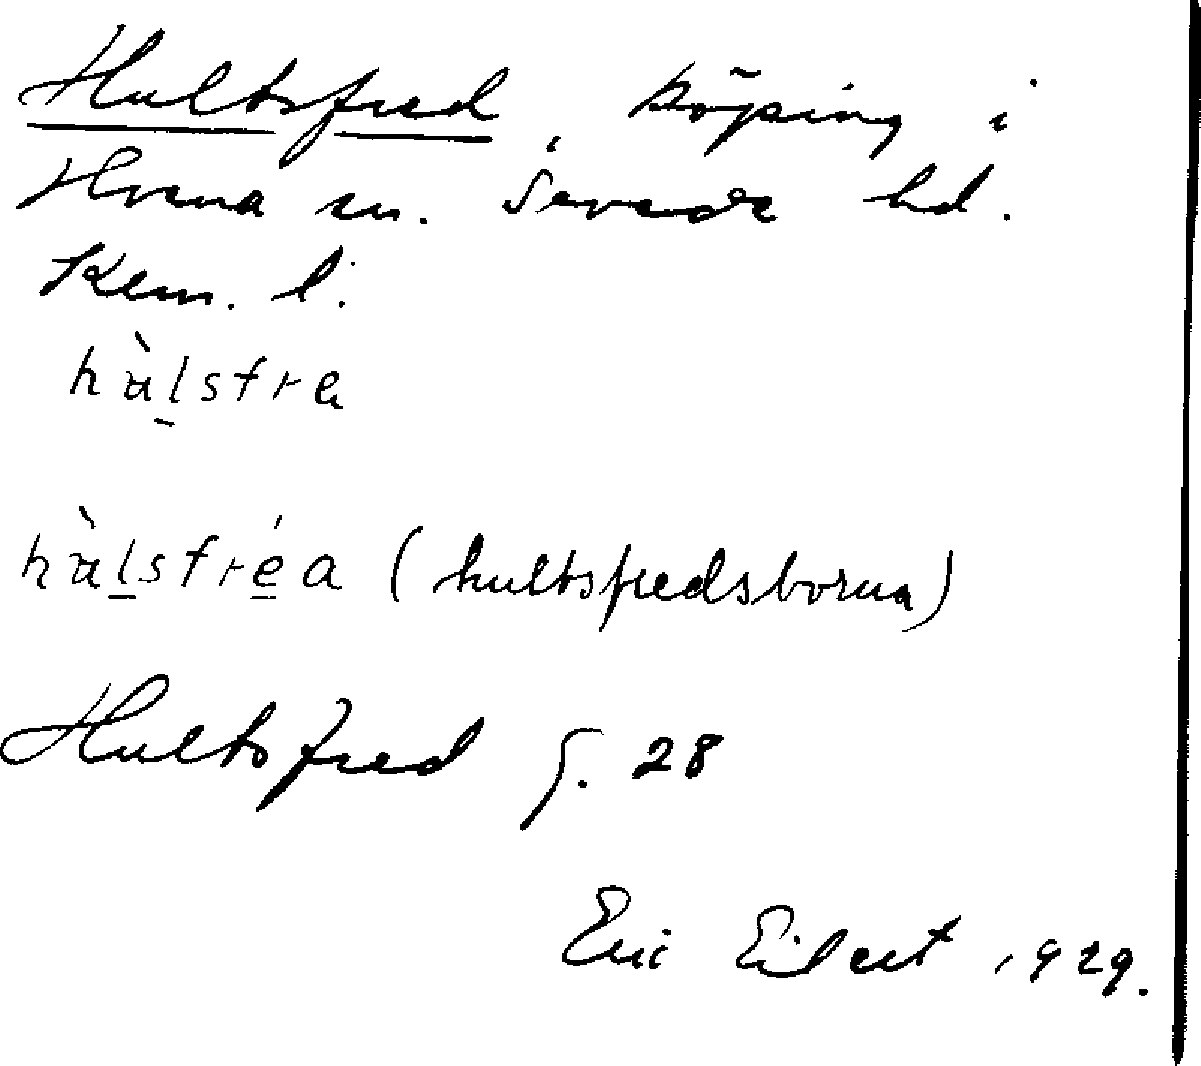 Hultsfred, köping i
Hvena sn. Sevede hd.
Kalm. l.
hùlstre
hùlsfréa (hultsfredsborna)
Hultsfred f. 28
Eric Eilert 1929.